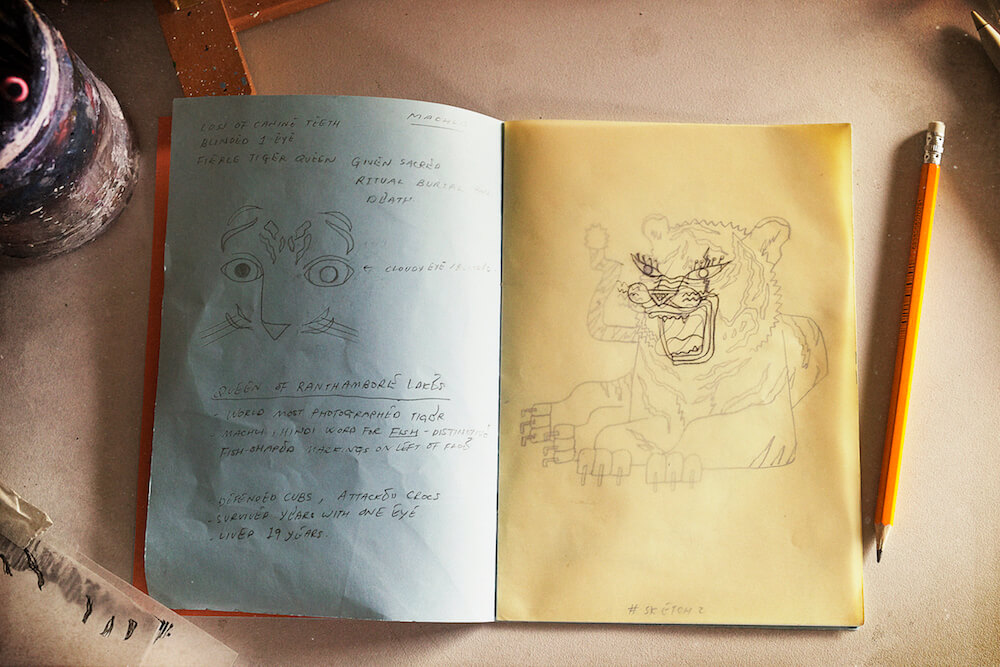 MACHLI
LOSS OF CANINE TEETH
BLINDED 1 EYE
FIERCE TIGER QUEEN GIVEN SACRED
RITUAL BURIAL
DEATH
← CLOUDY EYE
QUEEN OF RANTHAMBORE LAKES
- WORLD MOST PHOTOGRAPHED TIGER
- MACHLI, HINDI WORD FOR FISH - DISTINCTIVE
FISH-SHAPED MARKINGS ON LEFT OF FACE
- DEFENDED CUBS, ATTACKED CROCS
- SURVIVED YEARS WITH ONE EYE
- LIVED 19 YEARS.
# SKETCH 2